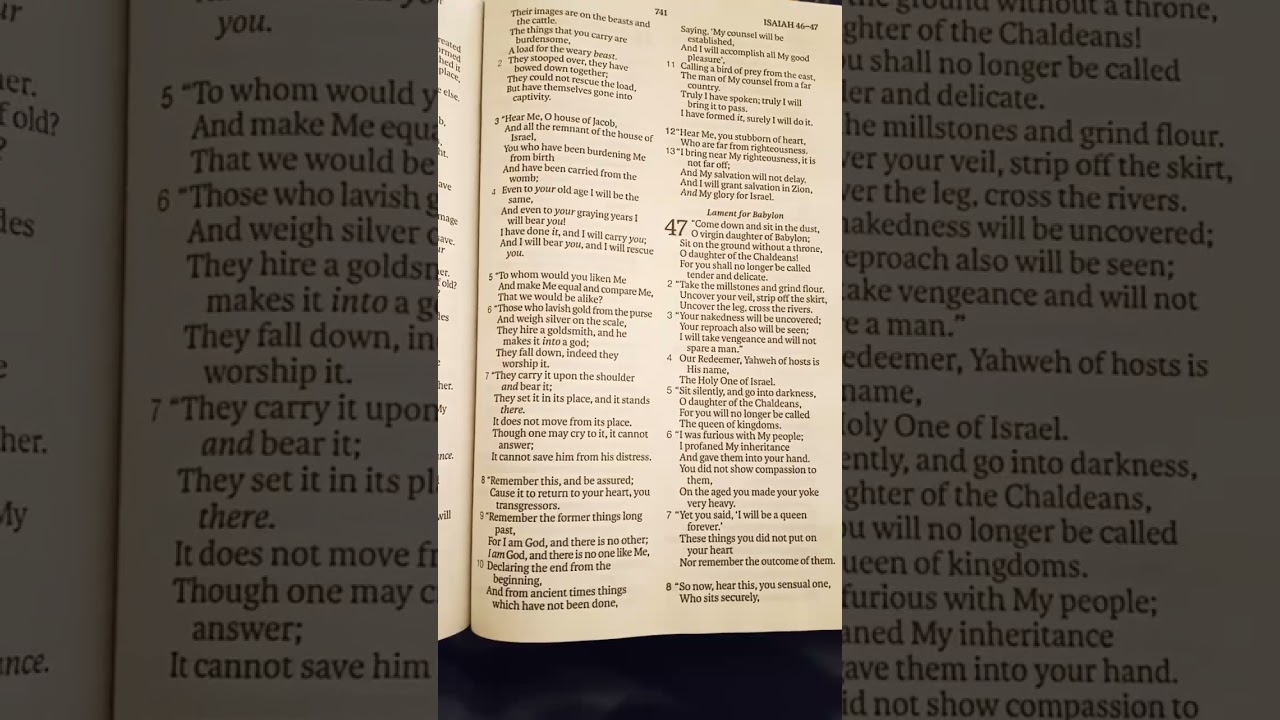 741
ISAIAH 46–47
Their images are on the beasts and
the cattle.
The things that you carry are
burdensome,
A load for the weary beast.
2 They stooped over, they have
bowed down together;
They could not rescue the load,
But have themselves gone into
captivity.
3 “Hear Me, O house of Jacob,
And all the remnant of the house of
Israel,
You who have been burdening Me
from birth
And have been carried from the
womb;
4 Even to your old age I will be the
same,
And even to your graying years I
will bear you!
I have done it, and I will carry you;
And I will bear you, and I will rescue
you.
5 “To whom would you liken Me
And make Me equal and compare Me,
That we would be alike?
6 “Those who lavish gold from the purse
And weigh silver on the scale,
They hire a goldsmith, and he
makes it into a god;
They fall down, indeed they
worship it.
7 “They carry it upon the shoulder
and bear it;
They set it in its place, and it stands
there.
It does not move from its place.
Though one may cry to it, it cannot
answer;
It cannot save him from his distress.
8 “Remember this, and be assured;
Cause it to return to your heart, you
transgressors.
9 “Remember the former things long
past,
For I am God, and there is no other;
I am God, and there is no one like Me,
10 Declaring the end from the
beginning,
And from ancient times things
which have not been done,
Saying, ‘My counsel will be
established,
And I will accomplish all My good
pleasure’,
11 Calling a bird of prey from the east,
The man of My counsel from a far
country.
Truly I have spoken; truly I will
bring it to pass.
I have formed it, surely I will do it.
12 “Hear Me, you stubborn of heart,
Who are far from righteousness.
13 “I bring near My righteousness, it is
not far off;
And My salvation will not delay.
And I will grant salvation in Zion,
And My glory for Israel.
Lament for Babylon
47 “Come down and sit in the dust,
O virgin daughter of Babylon;
Sit on the ground without a throne,
O daughter of the Chaldeans!
For you shall no longer be called
tender and delicate.
2 “Take the millstones and grind flour.
Uncover your veil, strip off the skirt,
Uncover the leg, cross the rivers.
3 “Your nakedness will be uncovered;
Your reproach also will be seen;
I will take vengeance and will not
spare a man.”
4 Our Redeemer, Yahweh of hosts is
His name,
The Holy One of Israel.
5 “Sit silently, and go into darkness,
O daughter of the Chaldeans,
For you will no longer be called
The queen of kingdoms.
6 “I was furious with My people;
I profaned My inheritance
And gave them into your hand.
You did not show compassion to
them,
On the aged you made your yoke
very heavy.
7 “Yet you said, ‘I will be a queen
forever.’
These things you did not put on
your heart
Nor remember the outcome of them.
8 “So now, hear this, you sensual one,
Who sits securely,